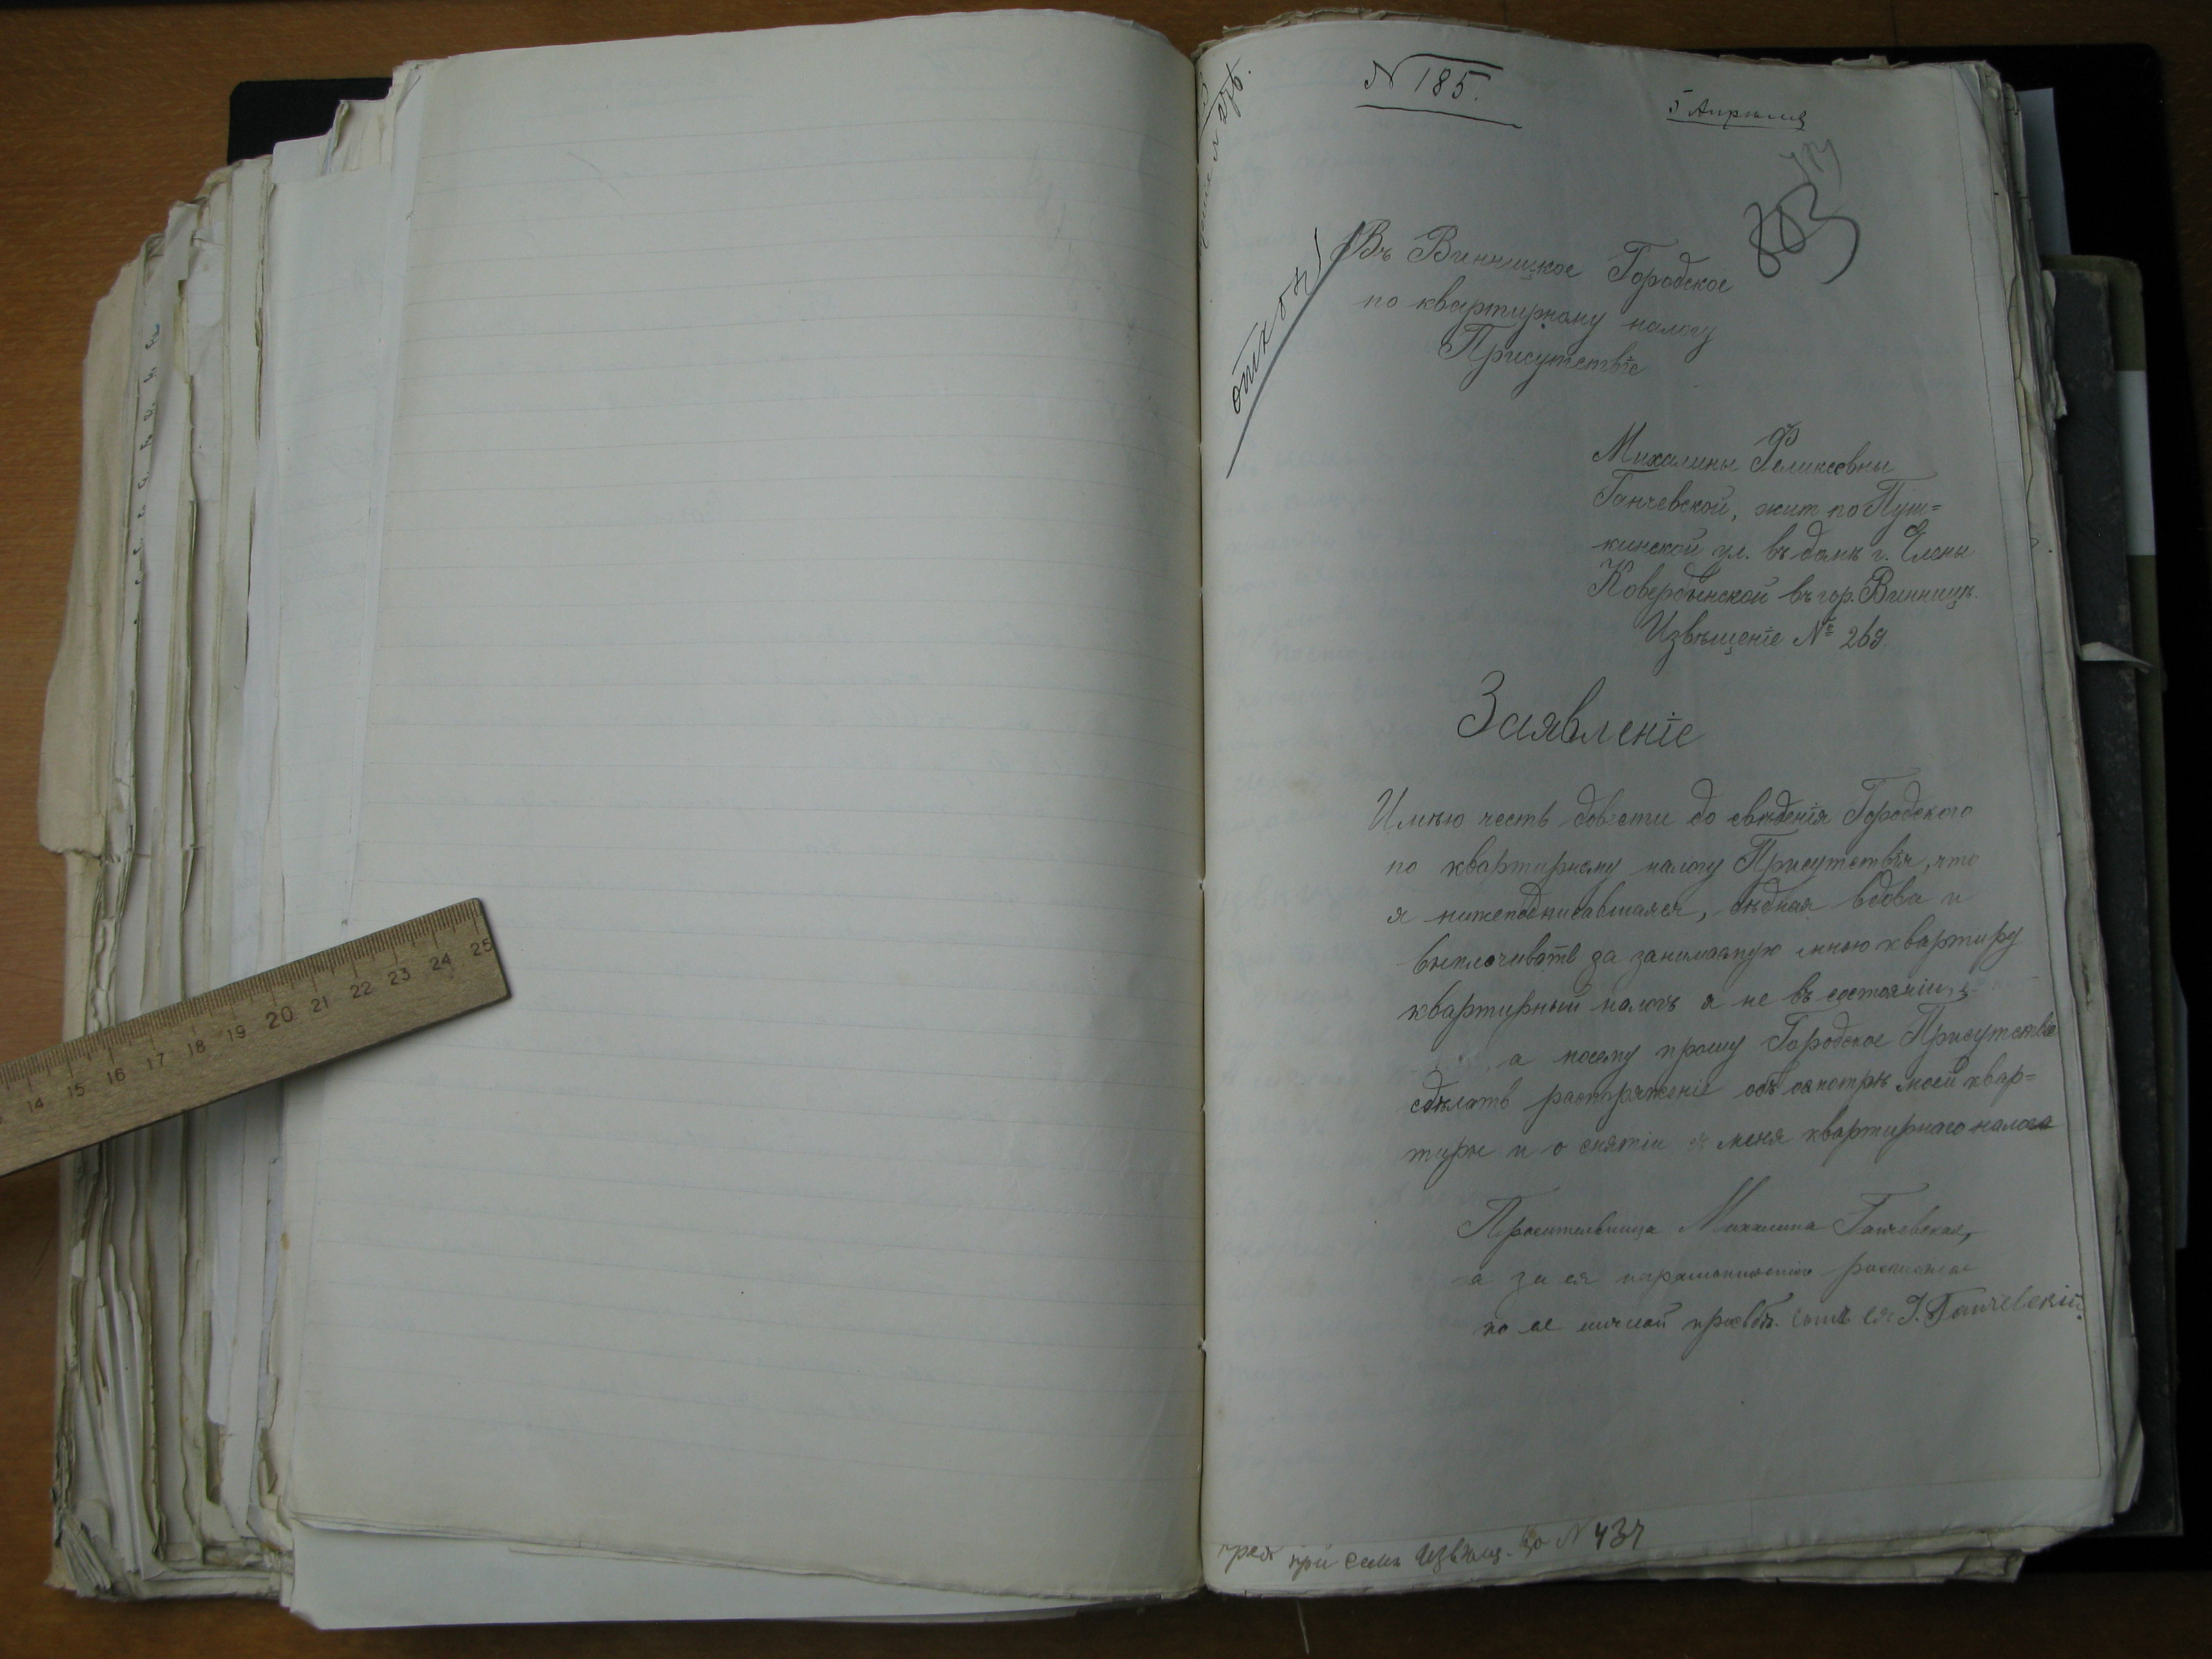 N 185.
5 Апрѣля
803
Въ Винницкое Городское
по квартирному налогу
Присутствіе
Михалины Феликсовны
Ганчевской, жит по Пуш=
кинской ул. въ домѣ г. Елены
Ковердынской въ гор. Винницѣ.
Извѣщеніе № 269.
Заявленіе
Имѣю честь довести до свѣдѣнія Городского
по квартирному налогу Присутствія, что
я нижеподписавшаяся, бѣдная вдова и
выплачивать за занимаемую мною квартиру
квартирный налогъ я не въ состояніи,
а посему прошу Городское Присутствіе
сдѣлать распоряженіе объ осмотрѣ моей квар=
тиры и о снятіи съ меня квартирнаго налога
Просительница Михалина Ганчевская,
а за ея неграмотностію росписался
по ея личной просьбѣ сынъ ея І. Ганчевскій.
при семъ Извѣщ. за N 434
14 15 16 17 18 19 20 21 22 23 24 25